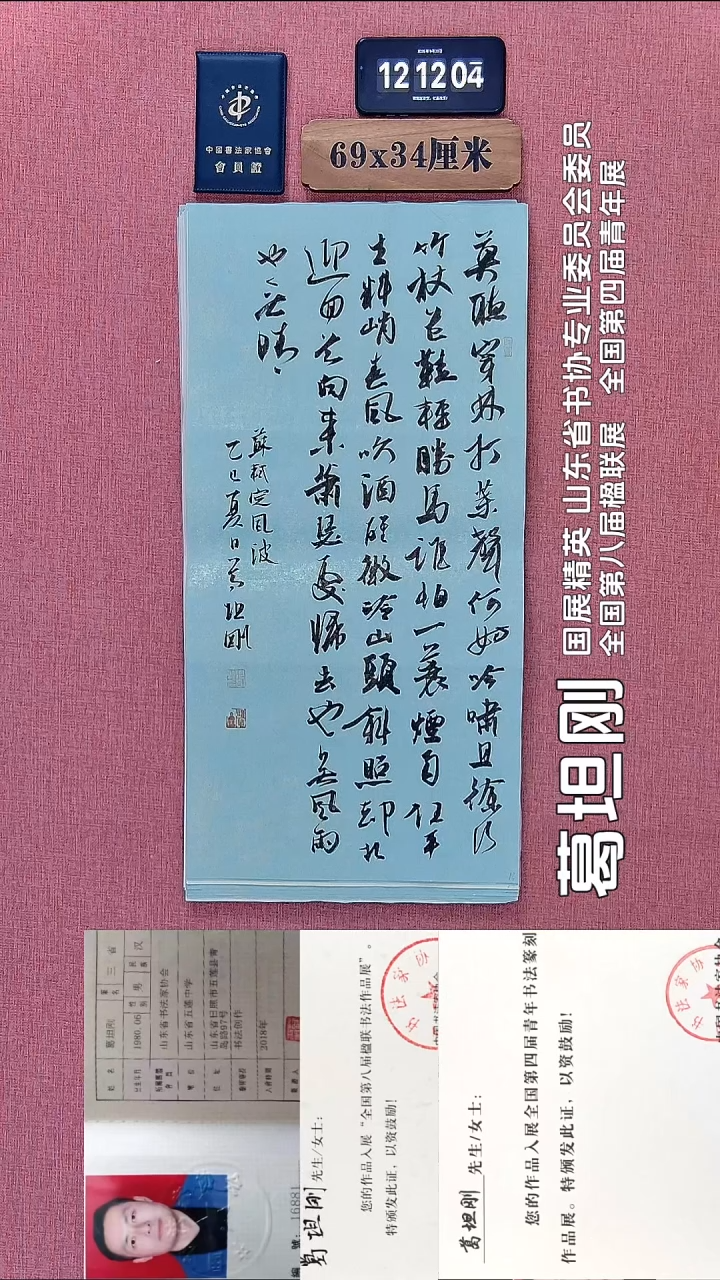 中國書法家協會
會員證
12 12 04
69x34厘米
莫聽穿林打葉聲何妨吟嘯且徐行
竹杖芒鞋輕勝馬誰怕一蓑煙雨任平
生料峭春風吹酒醒微冷山頭斜照却相
迎回首向來蕭瑟處歸去也無風雨
也無晴
蘇軾定風波
乙巳夏日葛坦剛
国展精英 山东省书协专业委员会委员
全国第八届楹联展 全国第四届青年展
葛坦刚
葛坦刚
1980.06
男
汉
山东省书法家协会
山东省五莲中学
山东省日照市五莲县青
岛路97号
书法创作
2018年
編號：16881
葛坦刚 先生/女士：
您的作品入展“全国第八届楹联书法作品展”。
特颁发此证，以资鼓励！
葛坦刚 先生/女士：
您的作品入展全国第四届青年书法篆刻
作品展。特颁发此证，以资鼓励！